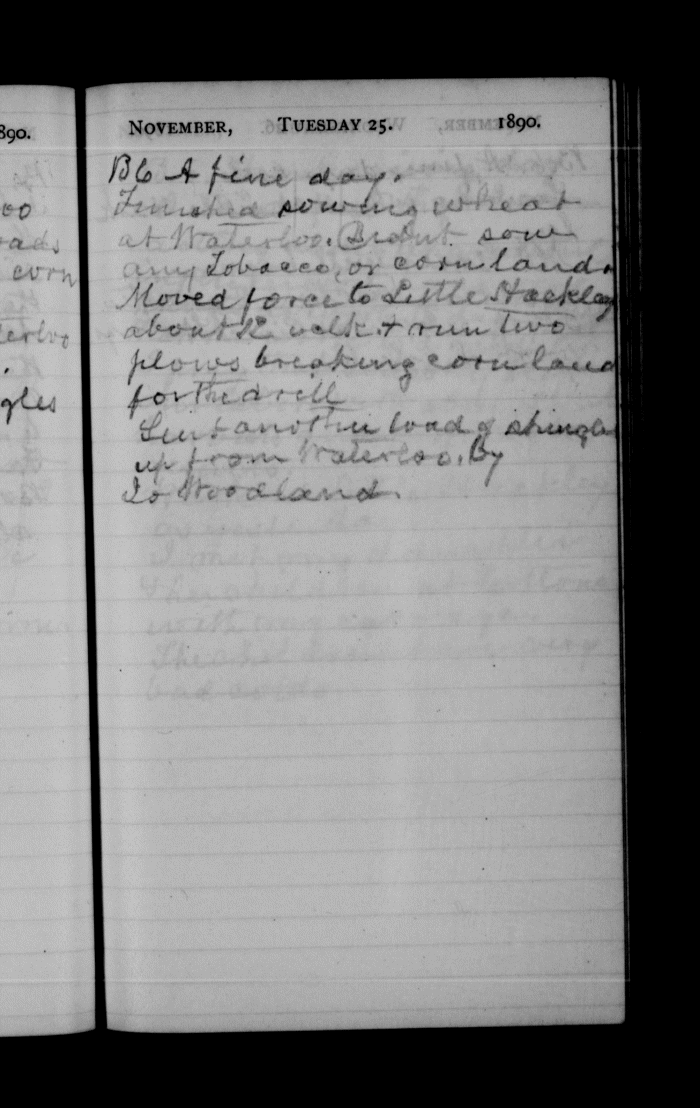 890.
oo
oads
corn
terloo
.
gles
NOVEMBER, TUESDAY 25. 1890.
B6 A fine day.
Finished sowing wheat
at Waterloo. Didnt sow
any Tobacco, or corn land.
Moved force to Little Hackley
about 12 oclk. & run two
plows breaking corn land
for the drill
Sent another load of shingles
up from Waterloo. By
To Woodland.